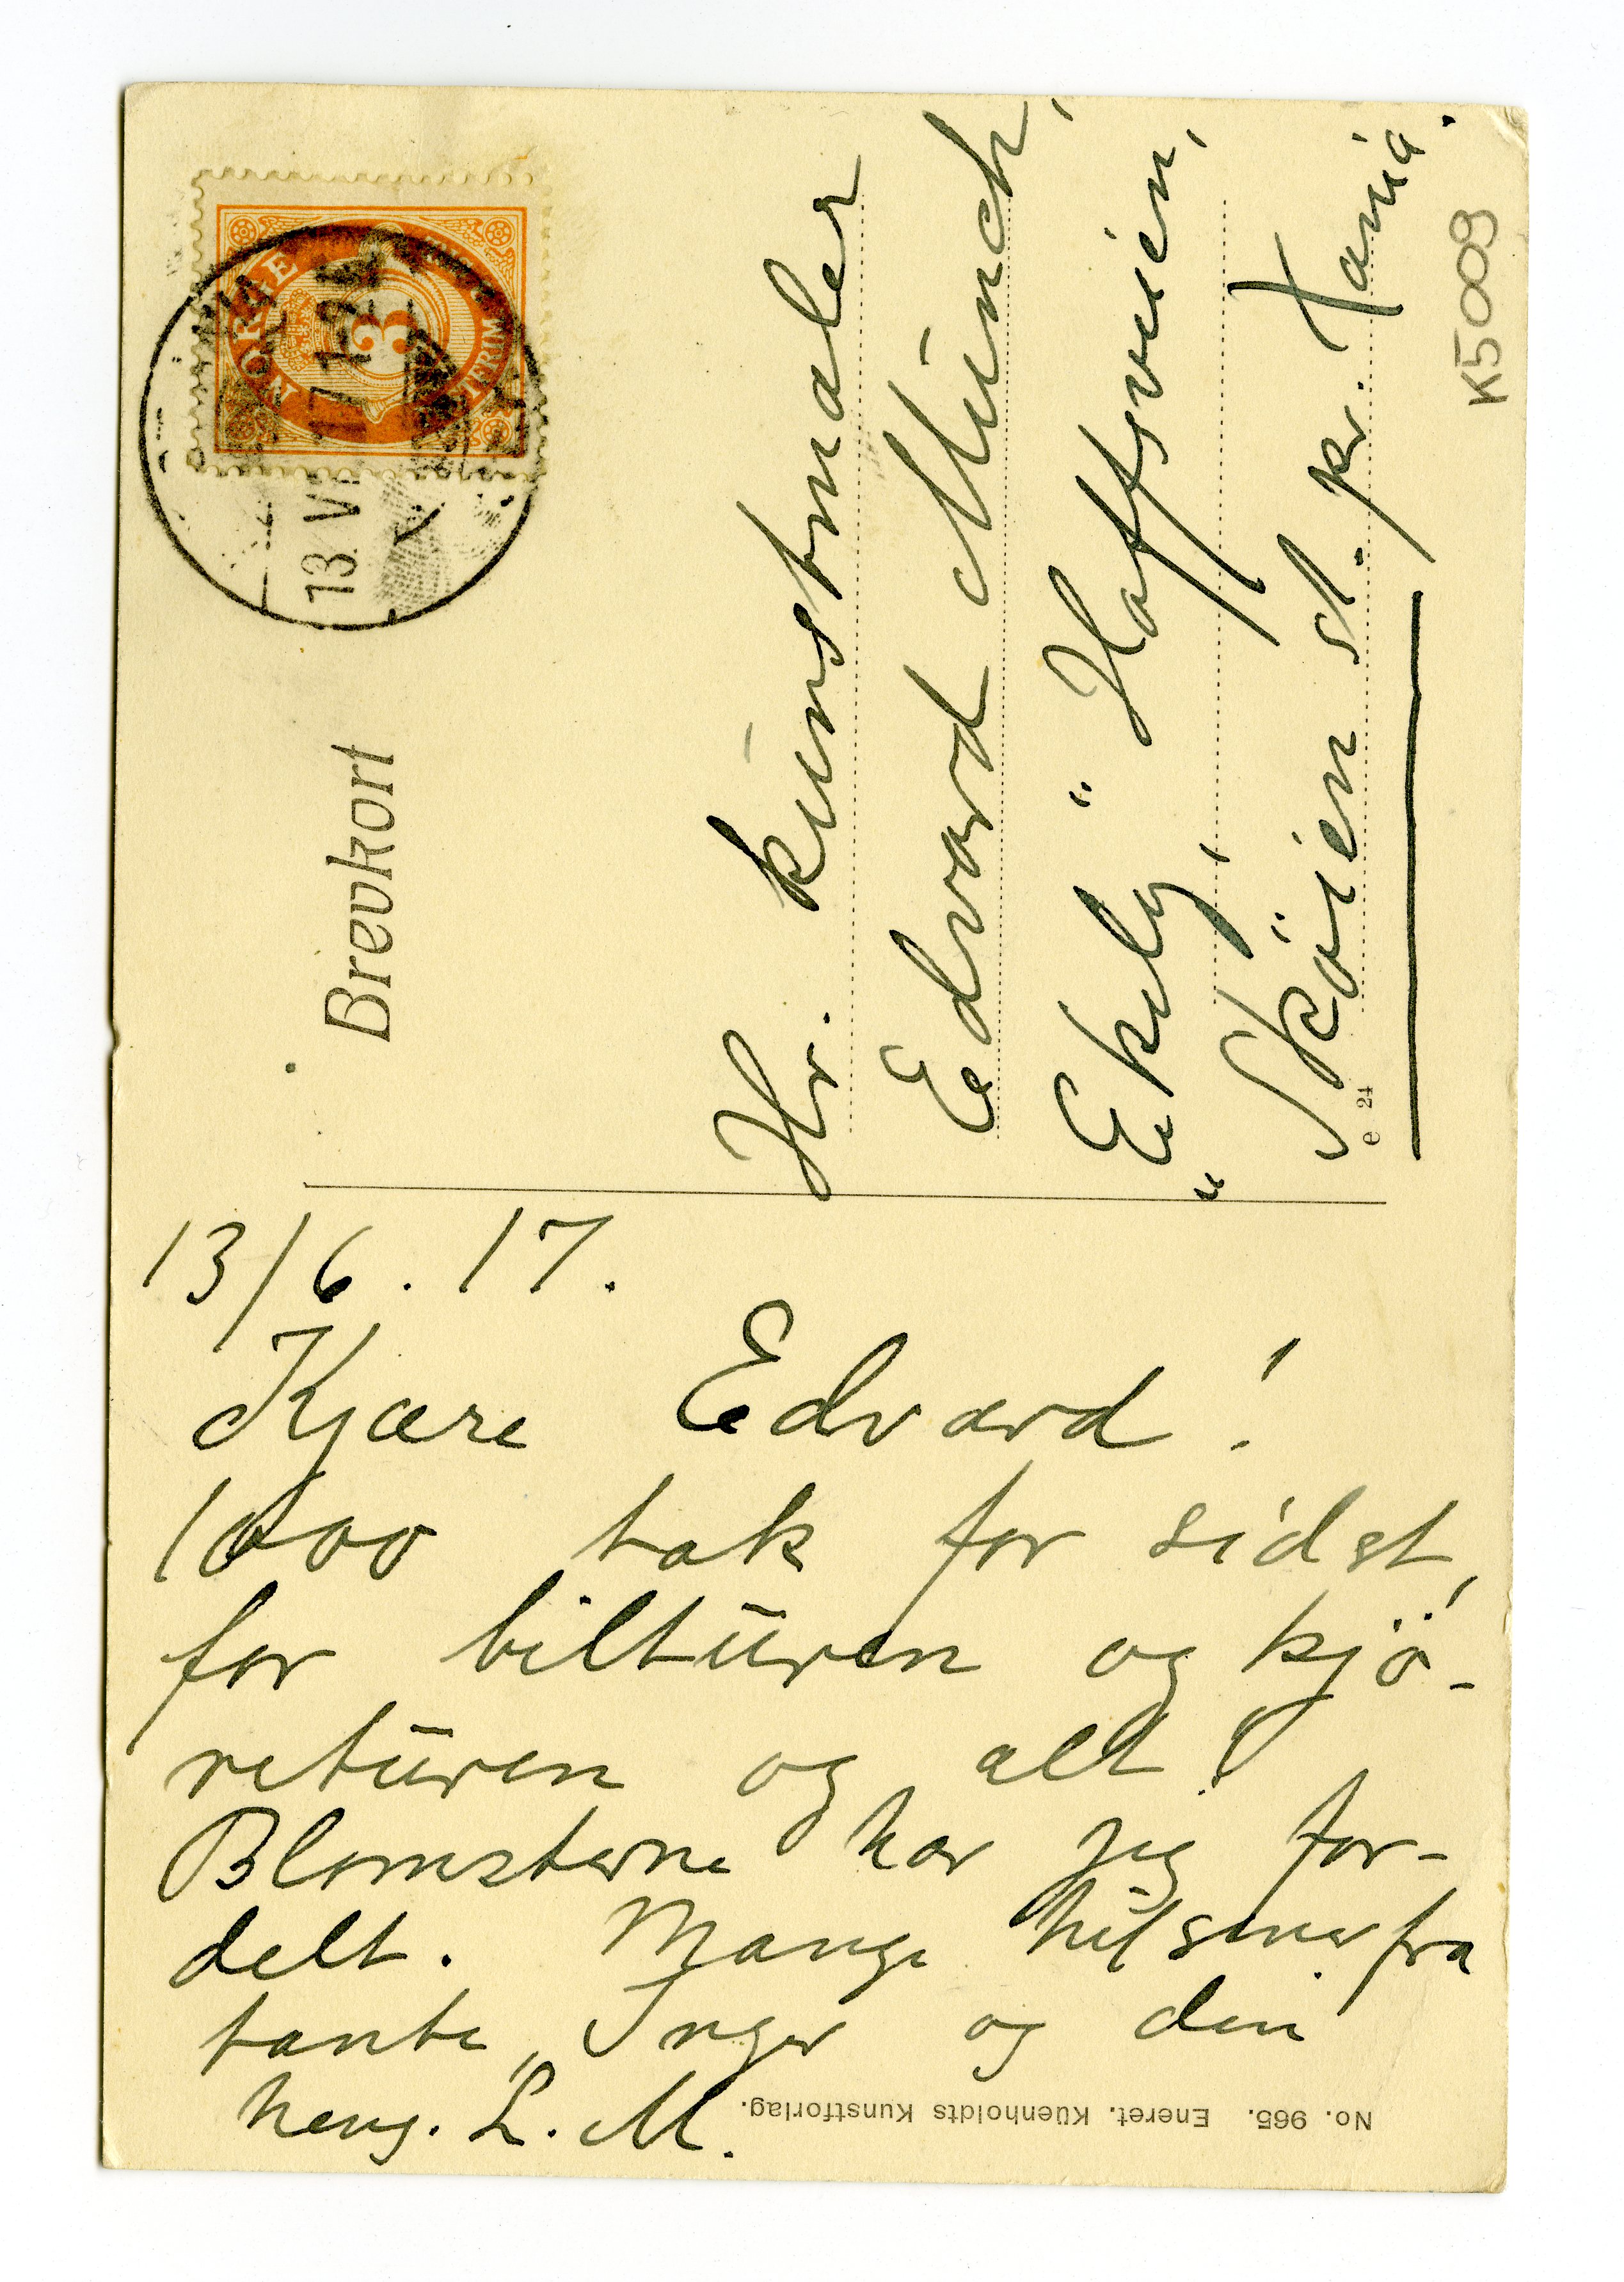 Brevkort
NORGE
3
13. VI. 17 1-2
Hr. kunstmaler
Edvard Munch,
„Ekely“ Hoffsveien,
Sköien st. pr. Xania.
e 24
K5009
13/6. 17.
Kjære Edvard!
1000 tak for sidst,
for bilturen og kjö-
returen og alt!
Blomsterne har jeg for-
delt. Mange hilsener fra
tante, Inger og din
heng. L. M.
No. 965. Eneret. Küenholdts Kunstforlag.